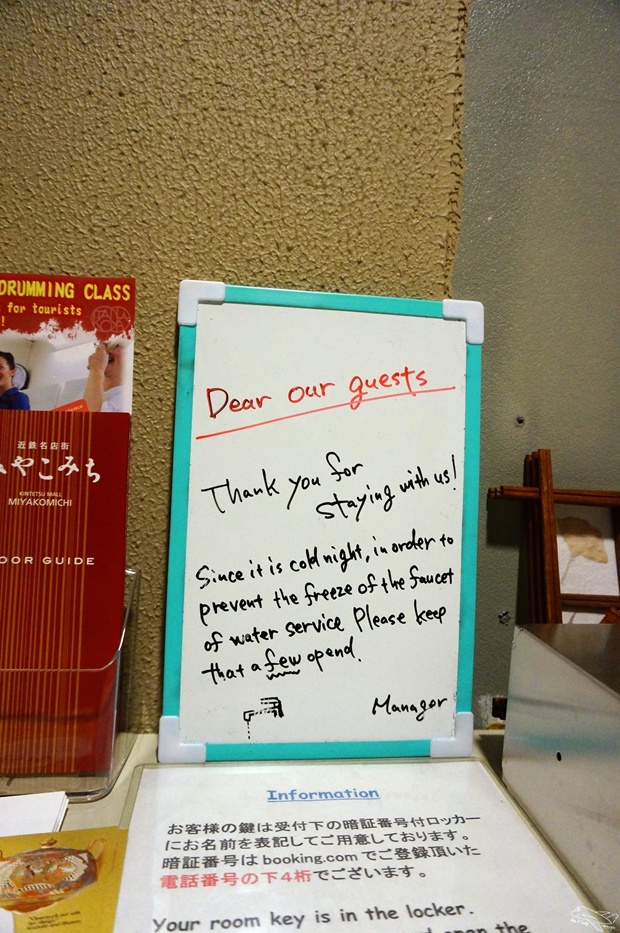 DRUMMING CLASS
for tourists
!
近鉄名店街
みやこみち
KINTETSU MALL
MIYAKOMICHI
OOR GUIDE
Dear our guests
Thank you for
staying with us!
Since it is cold night, in order to
prevent the freeze of the faucet
of water service Please keep
that a few opend.
Manager
Information
お客様の鍵は受付下の暗証番号付ロッカー
にお名前を表記してご用意しております。
暗証番号は booking.com でご登録頂いた
電話番号の下４桁でございます。
Your room key is in the locker.
open the